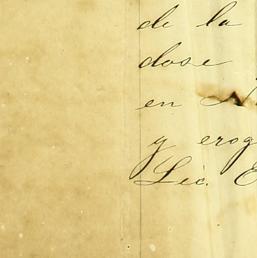 de la
dose
en
y erog
Lic. E